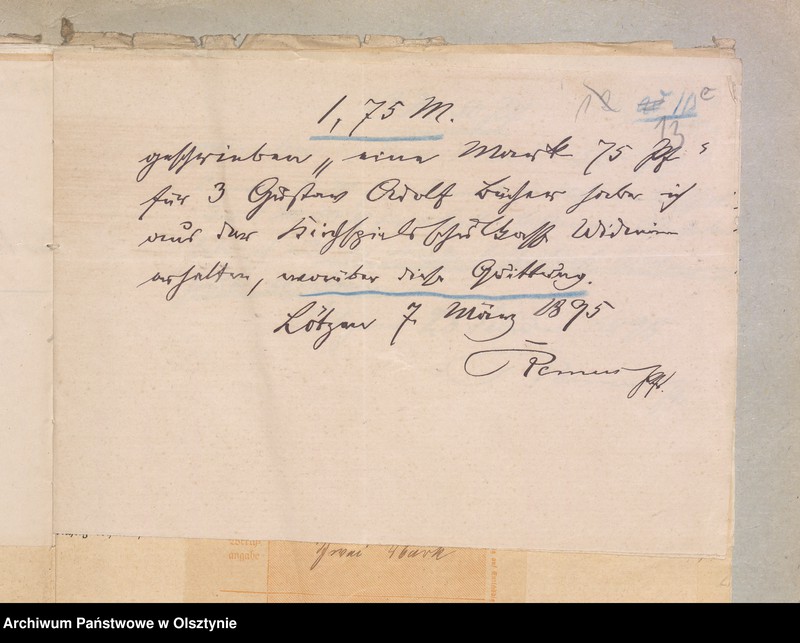 1,75 M.
12 11c
13
geschrieben „ eine Mark 75 Pf "
für 3 Gustav Adolf Bücher habe ich
aus der Kirchspielsschulkasse Widminnen
erhalten, worüber diese Quittung.
Lötzen 7 März 1895
Remus Pfr.
angabe
Zwei Mark
Archiwum Państwowe w Olsztynie